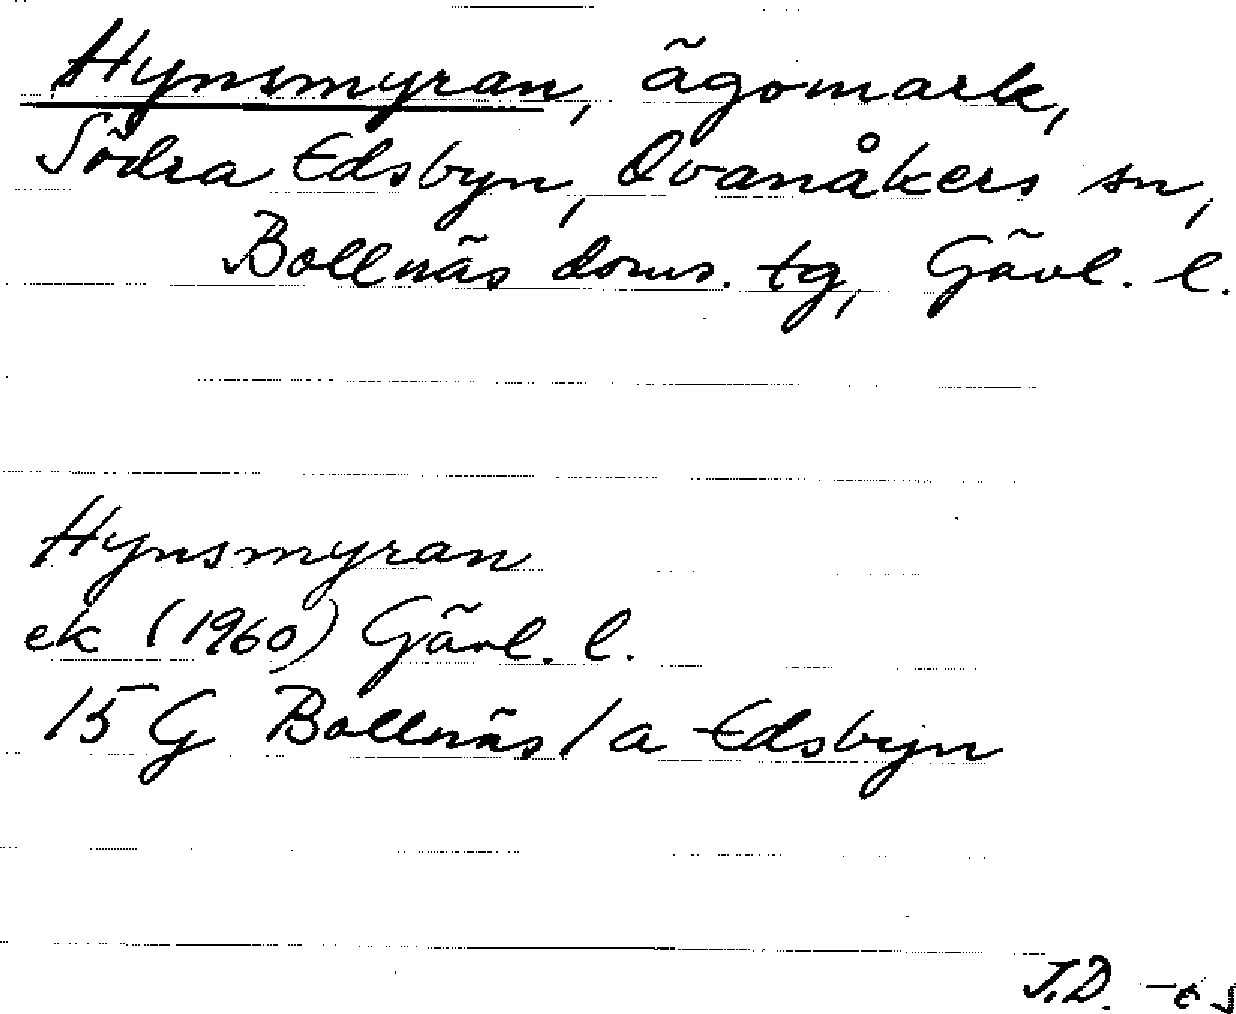 Hynsmyran, ägomark,
Södra Edsbyn, Ovanåkers sn,
Bollnäs doms. tg, Gävl. l.
Hynsmyran
ek (1960) Gävl. l.
15 G Bollnäs / a Edsbyn
J.D.